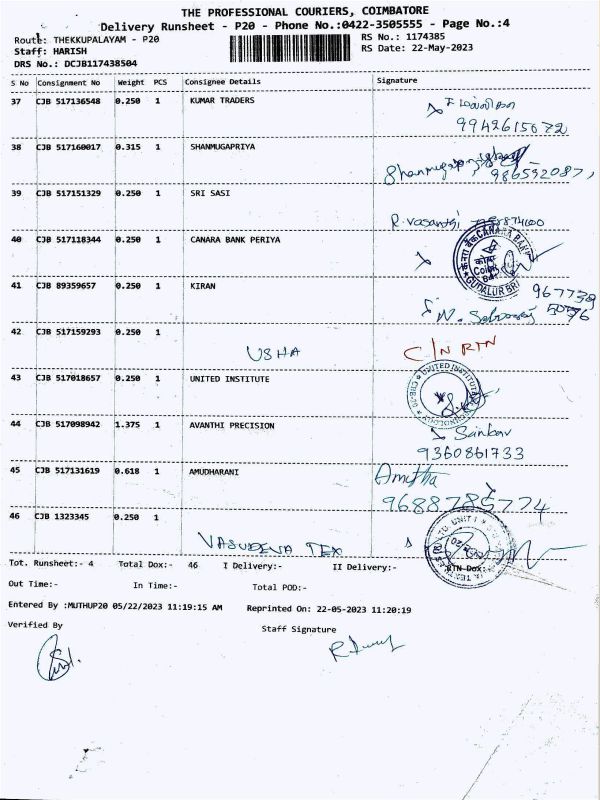 THE PROFESSIONAL COURIERS, COIMBATORE
Delivery Runsheet - P20 - Phone No.:0422-3505555 - Page No.:4
Route: THEKKUPALAYAM - P20
RS No.: 1174385
Staff: HARISH
RS Date: 22-May-2023
DRS No.: DCJB117438504
S No Consignment No Weight PCS Consignee Details Signature
37 CJB 517136548 0.250 1 KUMAR TRADERS
9942615072
38 CJB 517160017 0.315 1 SHANMUGAPRIYA
39 CJB 517151329 0.250 1 SRI SASI
R. Vasanthi
40 CJB 517118344 0.250 1 CANARA BANK PERIYA
CANARA BANK
GUDALUR BR
41 CJB 89359657 0.250 1 KIRAN
42 CJB 517159293 0.250 1
USHA C/N RTN
43 CJB 517018657 0.250 1 UNITED INSTITUTE
UNITED INSTITUTE
44 CJB 517098942 1.375 1 AVANTHI PRECISION
9360861733
45 CJB 517131619 0.618 1 AMUDHARANI
Amutha
46 CJB 1323345 0.250 1
VASUDEVA TEX
Tot. Runsheet:- 4 Total Dox:- 46 I Delivery:- II Delivery:- RTN Dox:-
Out Time:- In Time:- Total POD:-
Entered By :MUTHUP20 05/22/2023 11:19:15 AM Reprinted On: 22-05-2023 11:20:19
Verified By Staff Signature